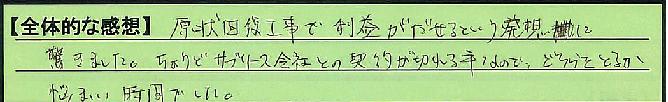 【全体的な感想】 原状回復工事で利益がだせるという発想に
驚きました。ちょうどサブリース会社との契約が切れる年なので、どちらをとるか
悩ましい時間でした。